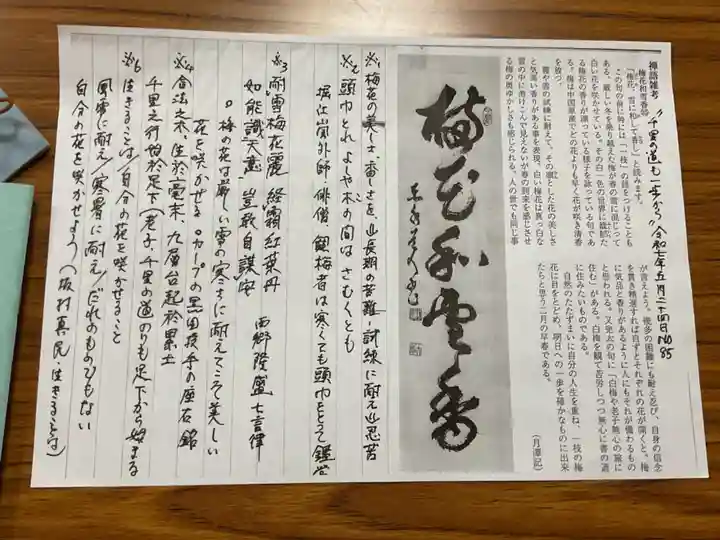 〝千里の道も一歩から〟令和七年五月二十四日 NO85
禅語雑考
梅花和雪香
「梅花、雪に和して香し」と読みます。
この句の前に時には「一枝」の語をつけることも
ある。厳しい冬を乗り越えた梅が春の雪に混じって
白い花を咲かせている。その白一色の世界に
る梅花の香りが漂っている様子を詠っている句であ
る。梅は中国原産でどの花よりも早く花が咲き清香
を放つ。
霜や雪の試練に耐えて、その凛とした花の美しさ
と気高い香りがある事を表現、白い梅花は真っ白な
雪の中に溶けこんで見えないが春の到来を感じさせ
る梅の奥ゆかしさも感じられる。人の世でも同じ事
が言えよう。幾多の困難にも耐え忍び、自身の信念
を貫き精進すれば自ずとそれぞれの花が開くと。梅
に気品と香りがあるように人にもそれが備わるもの
と思われる。又兜太の句に「白梅や老子無心の旅に
住む」がある。白梅を観て苦労しつつ無心に書の道
に住みたいものである。
自然のたたずまいに自分の人生を重ね、一枝の梅
花に目をとどめ、明日への一歩を確かなものに出来
たらと思う二月の早春である。
(月潭記)
梅花和雪香
※1 梅花の美しさ香しさを、山長期の苦難・試練に耐え山忍苦
※2 頭巾とれよしや木の間はさむくとも
嵐外師 俳僧、観梅者は寒くても頭巾をとって
※3 耐雪梅花麗 経霜紅葉丹 西郷隆盛 七言律
如能識天意 豈敢自謀安
○梅の花は厳しい雪の寒さに耐えてこそ美しい
花を咲かせる ○カープの黒田投手の座右銘
※4 合抱之木、生於毫末 九層台起於累土
千里之行始於足下(老子、千里の道のりも足下から始まる
※6 生きることは/自分の花を咲かせること
風雪に耐え/寒暑に耐え/だれのものでもない
自分の花を咲かせよう(坂村真民 生きるとは)